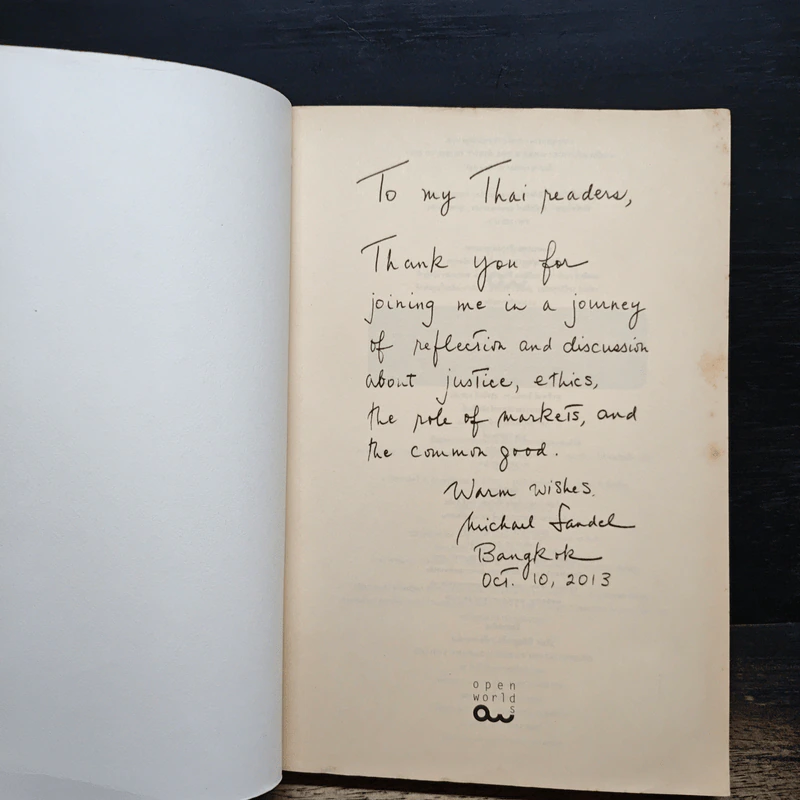 To my Thai readers,
Thank you for
joining me in a journey
of reflection and discussion
about justice, ethics,
the role of markets, and
the common good.
Warm wishes.
Michael Sandel
Bangkok
Oct. 10, 2013
open
worlds